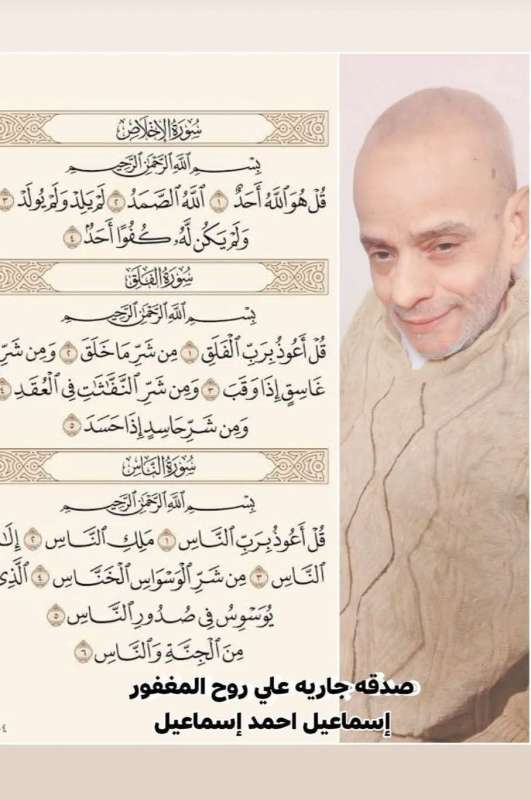 سُورَةُ الإِخْلَاصِ
بِسْمِ اللَّهِ الرَّحْمَٰنِ الرَّحِيمِ
قُلْ هُوَ ٱللَّهُ أَحَدٌ ١ ٱللَّهُ ٱلصَّمَدُ ٢ لَمْ يَلِدْ وَلَمْ يُولَدْ ٣
وَلَمْ يَكُن لَّهُۥ كُفُوًا أَحَدٌۢ ٤
سُورَةُ الفَلَقِ
بِسْمِ اللَّهِ الرَّحْمَٰنِ الرَّحِيمِ
قُلْ أَعُوذُ بِرَبِّ ٱلْفَلَقِ ١ مِن شَرِّ مَا خَلَقَ ٢ وَمِن شَرِّ
غَاسِقٍ إِذَا وَقَبَ ٣ وَمِن شَرِّ ٱلنَّفَّٰثَٰتِ فِى ٱلْعُقَدِ ٤
وَمِن شَرِّ حَاسِدٍ إِذَا حَسَدَ ٥
سُورَةُ النَّاسِ
بِسْمِ اللَّهِ الرَّحْمَٰنِ الرَّحِيمِ
قُلْ أَعُوذُ بِرَبِّ ٱلنَّاسِ ١ مَلِكِ ٱلنَّاسِ ٢ إِلَٰ
ٱلنَّاسِ ٣ مِن شَرِّ ٱلْوَسْوَاسِ ٱلْخَنَّاسِ ٤ ٱلَّذِى
يُوَسْوِسُ فِى صُدُورِ ٱلنَّاسِ ٥
مِنَ ٱلْجِنَّةِ وَٱلنَّاسِ ٦
صدقه جاريه علي روح المغفور
إسماعيل احمد إسماعيل